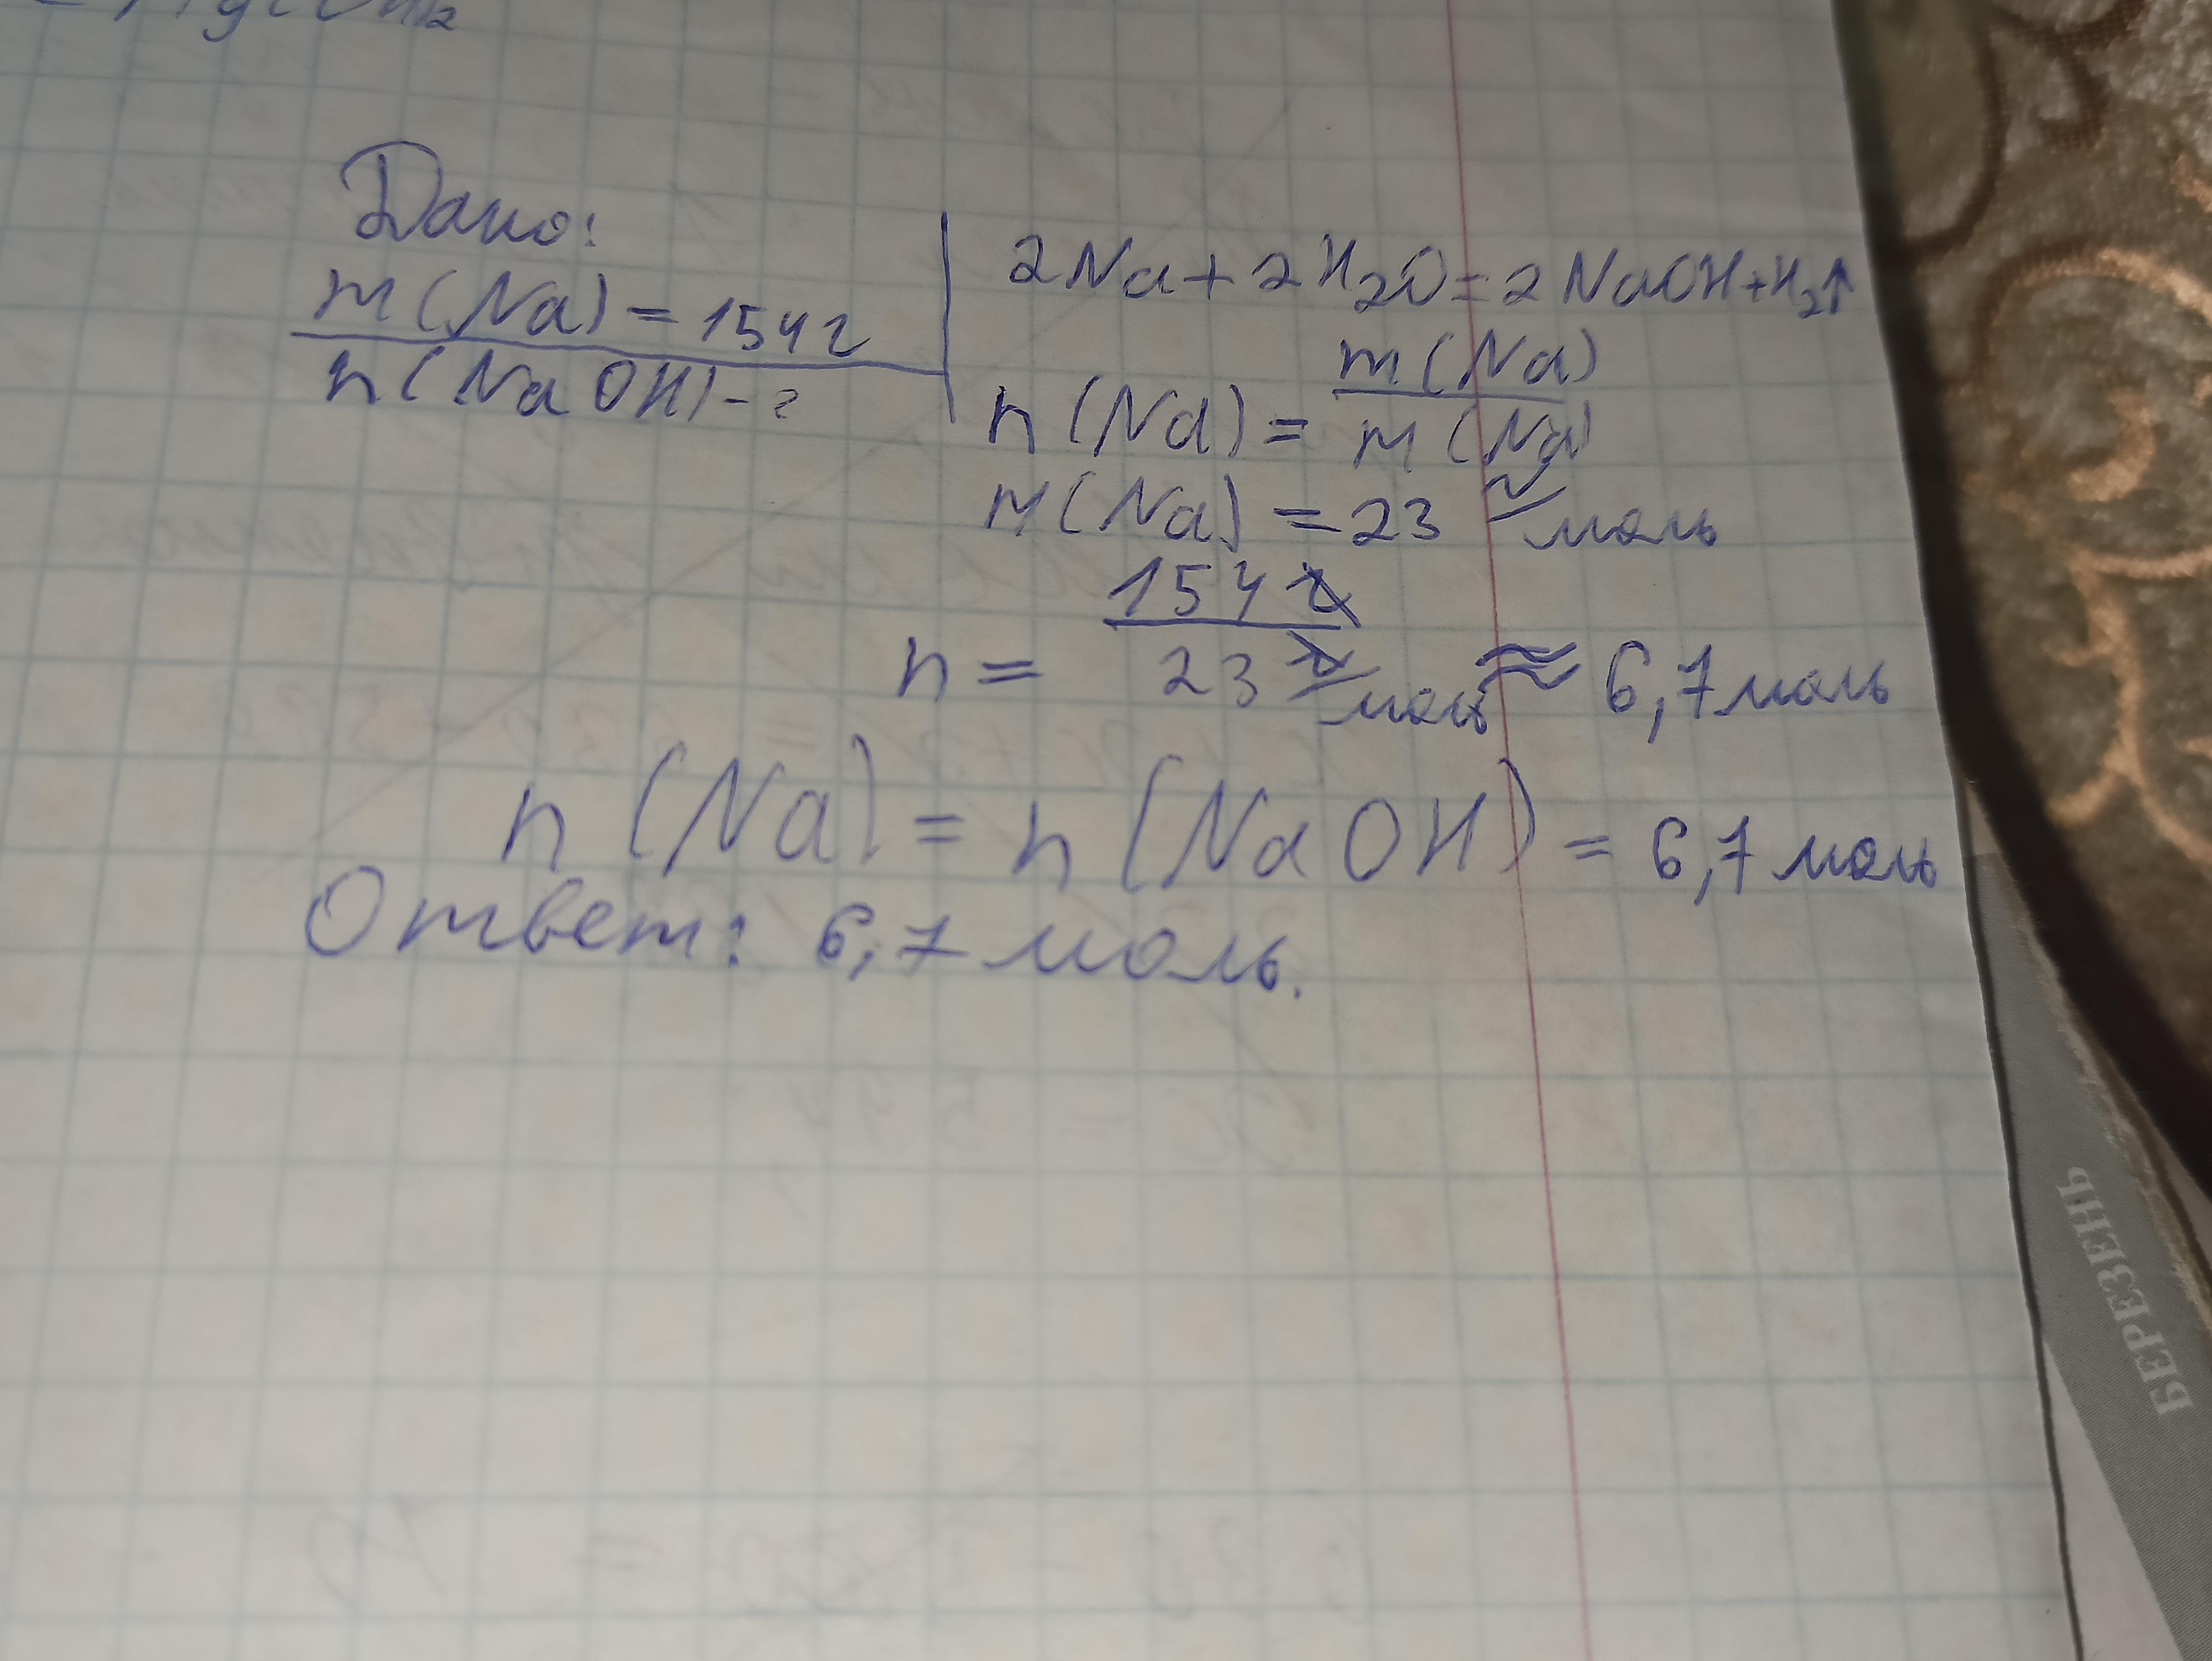 Дано:
m(Na) = 154 г
n(NaOH) - ?
2Na + 2H₂O = 2NaOH + H₂↑
n(Na) = m(Na) / M(Na)
M(Na) = 23 г/моль
n = 154 г / 23 г/моль ≈ 6,7 моль
n(Na) = n(NaOH) = 6,7 моль
Ответ: 6,7 моль.
БЕРЕЗЕНЬ